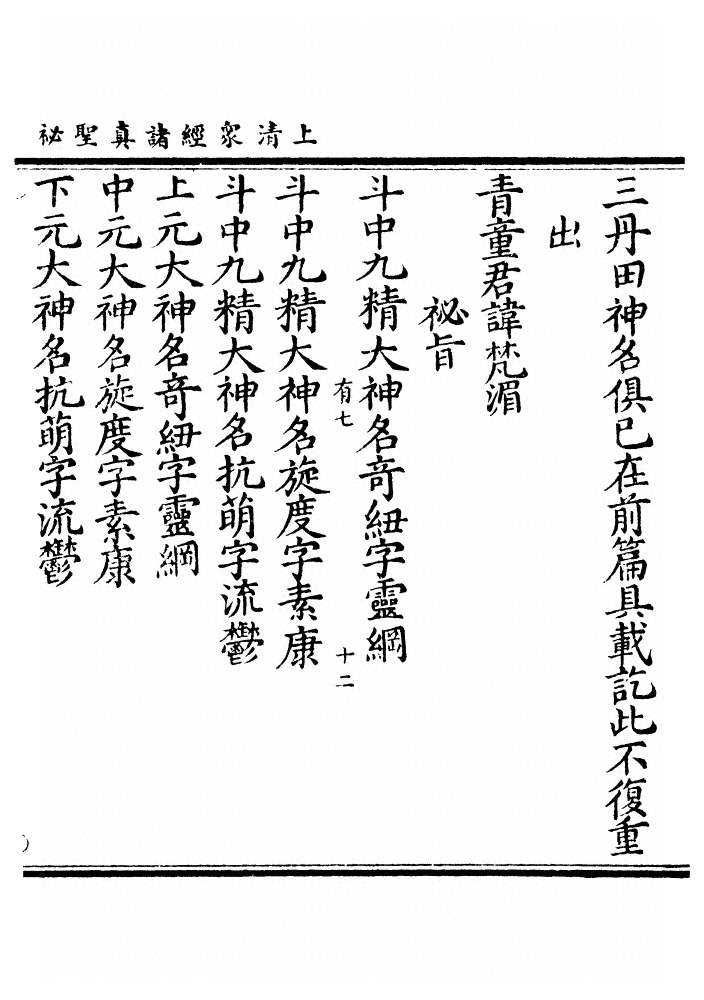 上清衆經諸真聖祕
三丹田神名俱已在前篇具載訖此不復重
出
青童君諱梵湄
祕旨
斗中九精大神名竒紐字靈綱
有七
十二
斗中九精大神名旋度字素康
斗中九精大神名抗萌字流鬱
上元大神名竒紐字靈綱
中元大神名旋度字素康
下元大神名抗萌字流鬱